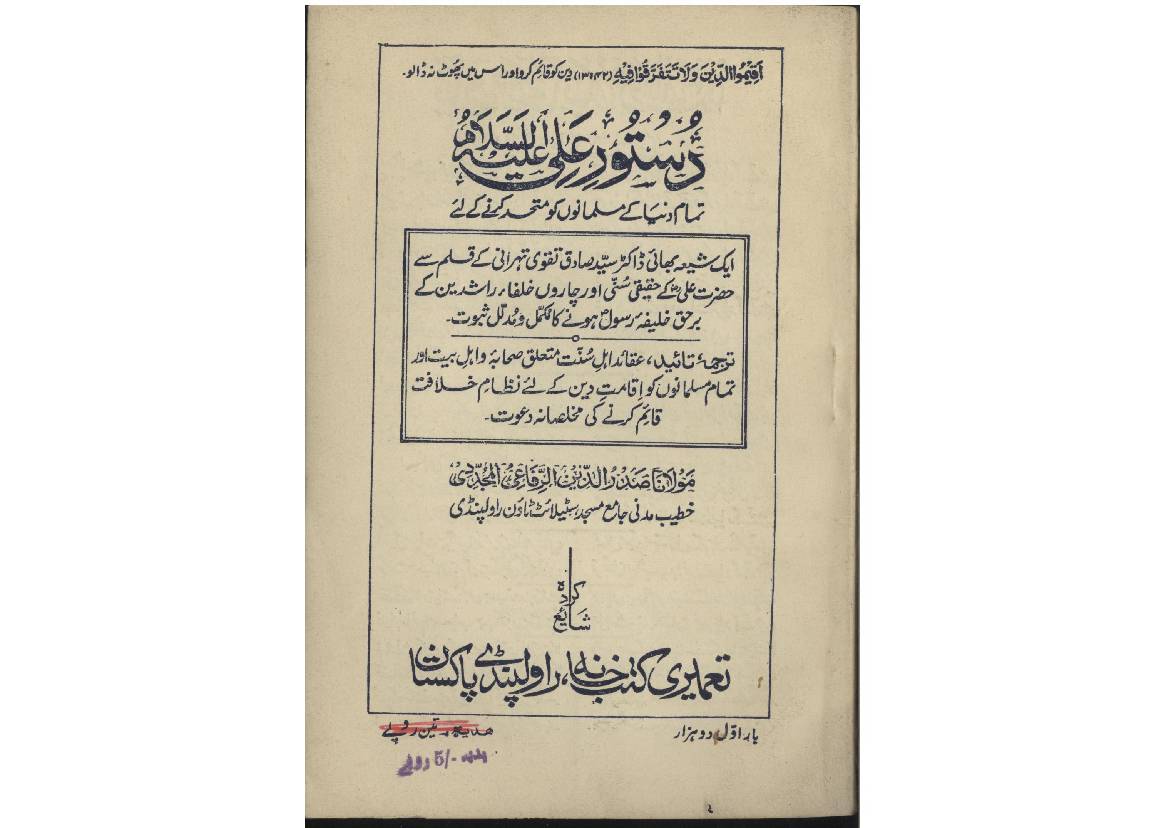 اَقِیْمُوا الدِّیْنَ وَلَا تَتَفَرَّقُوْا فِیْهِ (۴۲؍۱۳) دین کو قائم کرو اور اس میں پھوٹ نہ ڈالو۔
دُستُورِ عَلی عَلَیہِ السَّلَام
تمام دنیا کے مسلمانوں کو متحد کرنے کے لئے
ایک شیعہ بھائی ڈاکٹر سیّد صادق تقوی تہرانی کے قلم سے
حضرت علیؓ کے حقیقی سُنّی اور چاروں خلفاء راشدین کے
برحق خلیفۂ رسولؐ ہونے کا مکمّل و مُدلّل ثبوت۔
ترجمۂ تائید، عقائد اہلِ سُنّت متعلق صحابہ و اہلِ بیت اور
تمام مسلمانوں کو اِقامتِ دین کے لئے نظامِ خلافت
قائم کرنے کی مخلصانہ دعوت۔
مَولانا صَدرُ الدِّین الرِّفاعِی المُجدِّدی
خطیب مدنی جامع مسجد، سٹیلائٹ ٹاؤن راولپنڈی
شائع کردہ
تعمیری کتب خانہ، راولپنڈی پاکستان
بار اوّل دو ہزار
ھدیہ تین روپے
ہدیہ -/5 روپے
۲